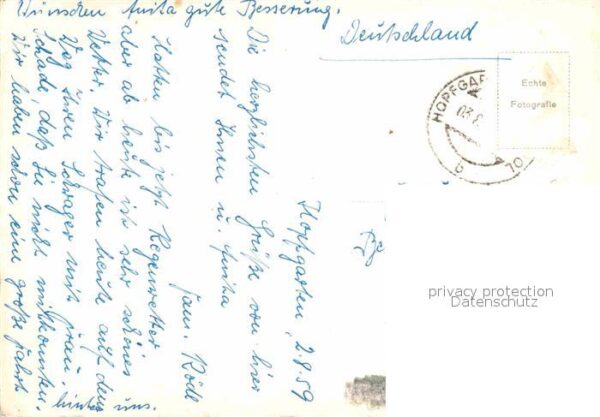 Hopfgarten, 2.8.59
Die herzlichsten Grüße von hier
sendet Ihnen u. Anita
Fam. Röll
Hatten bis jetzt Regenwetter
aber ab heute ist sehr schönes
Wetter. Wir trafen heute auf dem
Weg Ihren Schwager mit Frau.
Schade, daß Sie nicht mitkonnten.
Wir haben schon eine große Fahrt
hinter uns.
Wünschen Anita gute Besserung.
Deutschland
Echte
Fotografie
HOPFGAR
03.8.
b
10
privacy protection
Datenschutz